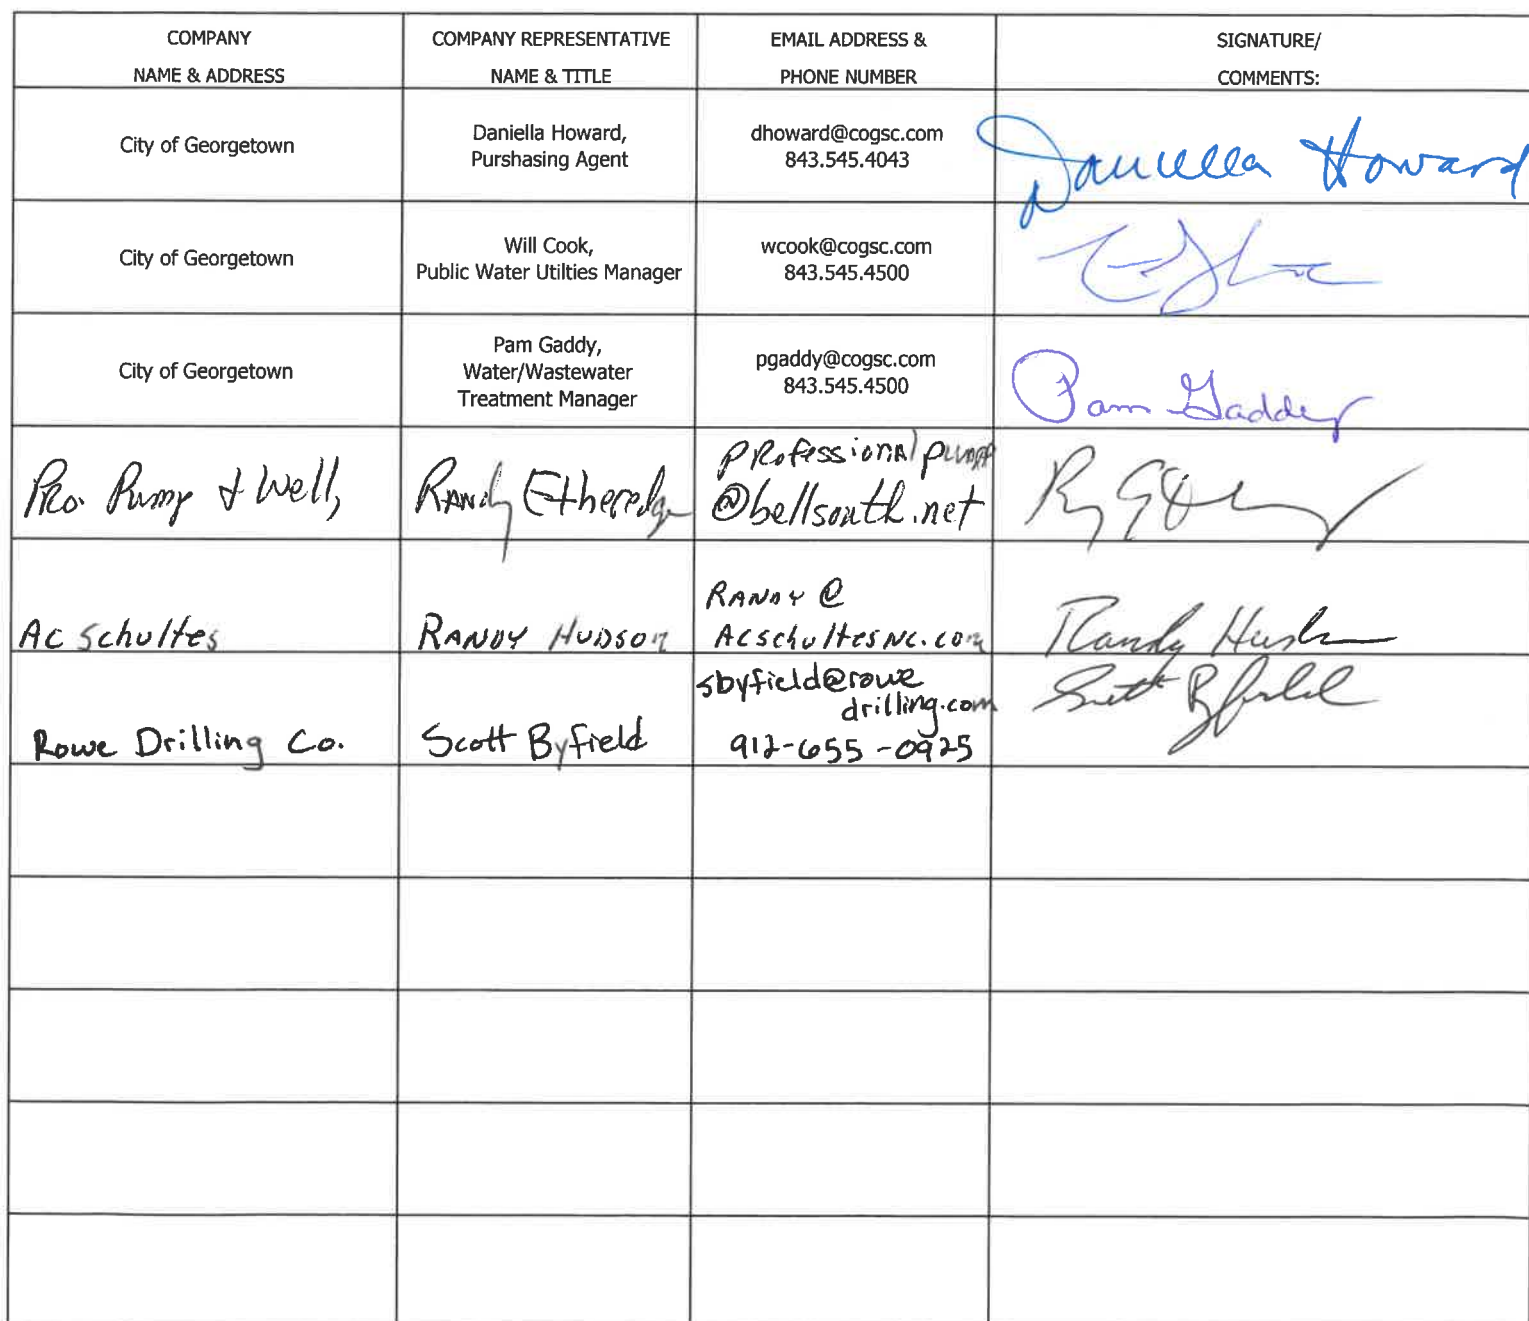 COMPANY
NAME & ADDRESS
COMPANY REPRESENTATIVE
NAME & TITLE
EMAIL ADDRESS &
PHONE NUMBER
SIGNATURE/
COMMENTS:
City of Georgetown
Daniella Howard,
Purshasing Agent
dhoward@cogsc.com
843.545.4043
Daniella Howard
City of Georgetown
Will Cook,
Public Water Utilties Manager
wcook@cogsc.com
843.545.4500
City of Georgetown
Pam Gaddy,
Water/Wastewater
Treatment Manager
pgaddy@cogsc.com
843.545.4500
Pam Gaddy
Pro. Pump & Well,
Randy Etheredge
Professional pump
@bellsouth.net
AC Schultes
RANDY HUDSON
RANDY @
ACSchultesNC.com
Randy Huds
Rowe Drilling Co.
Scott Byfield
sbyfield@rowe
drilling.com
912-655-0925
Scott Byfield